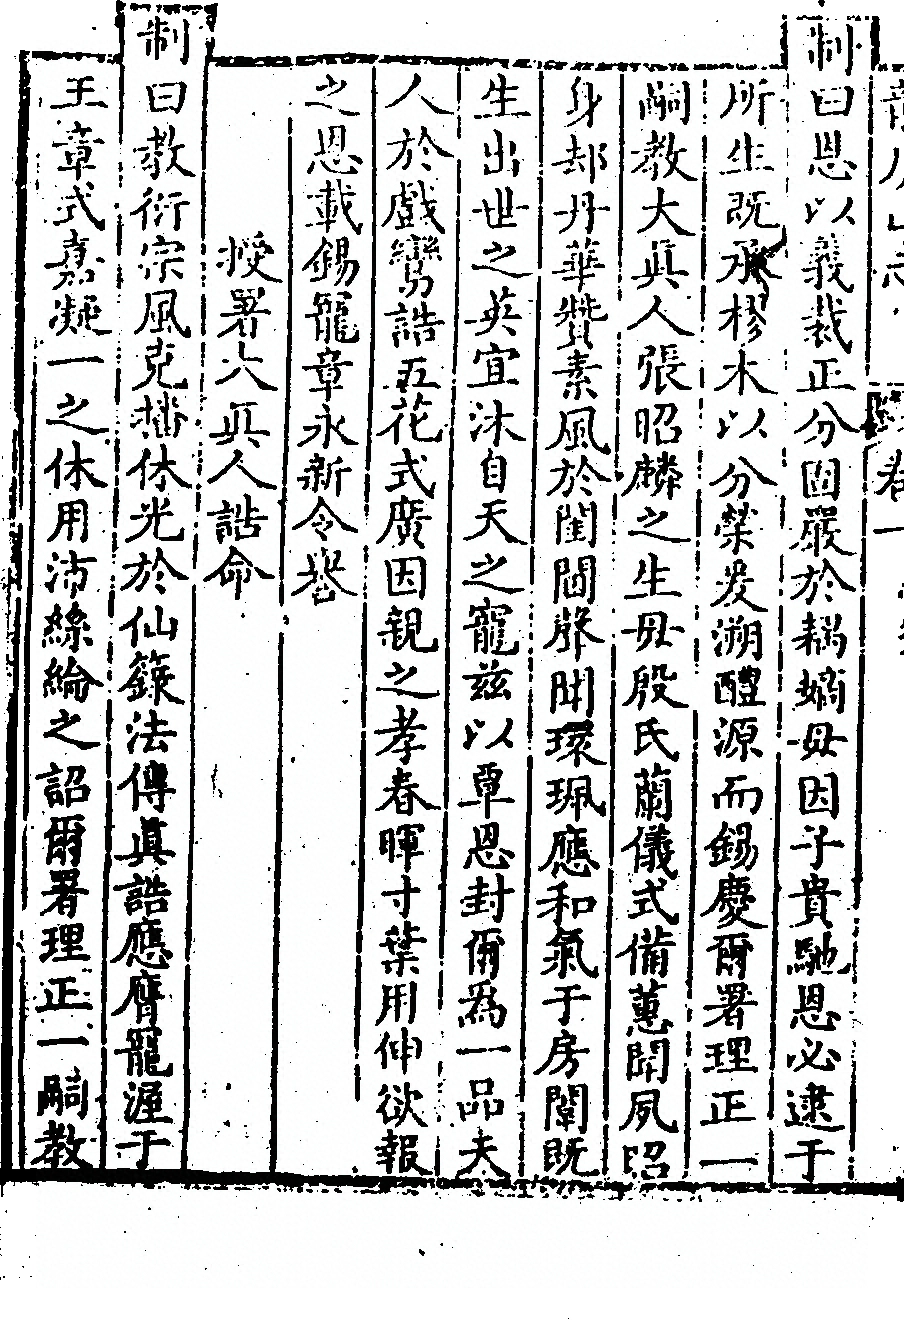 制曰恩以義裁正分固嚴於耦嫡母因子貴馳恩必逮于
所生既承樛木以分榮爰溯醴源而錫慶爾署理正一
嗣教大眞人張昭麟之生母殷氏蘭儀式備蕙問夙昭
身却丹華贊素風於閨閫聲聞環珮應和氣于房闈既
生出世之英宜沐自天之寵茲以覃恩封爾為一品夫
人於戲鸞誥五花式廣因親之孝春暉寸葉用伸欲報
之恩載錫寵章永新令譽
授署大眞人誥命
制曰教衍宗風克播休光於仙籙法傳眞誥應膺寵渥于
王章式嘉凝一之休用沛絲綸之詔爾署理正一嗣教